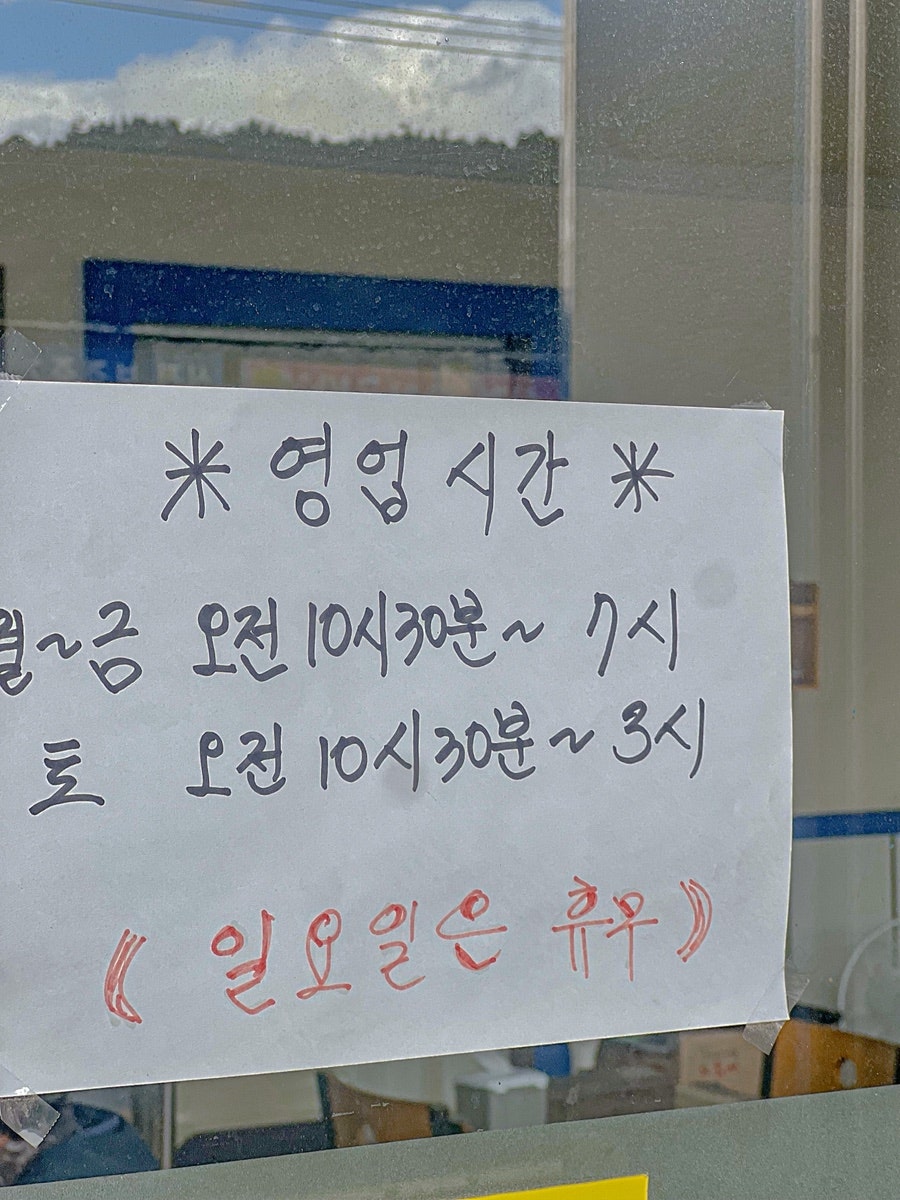 * 영업시간 *
월~금 오전 10시30분~ 7시
토 오전 10시30분~3시
《 일요일은 휴무 》